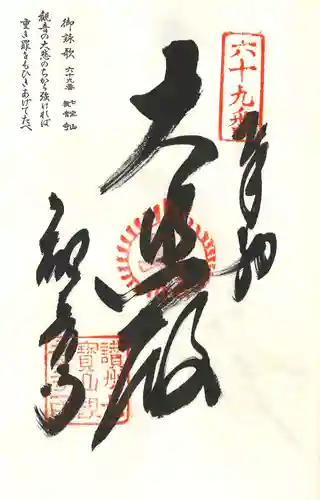 六十九番
奉納
大悲殿
観音寺
讃州七
寳山観
音寺印
御詠歌 六十九番 七宝山 観音寺
観音の大悲のちから強ければ
重き罪をもひきあげてたべ